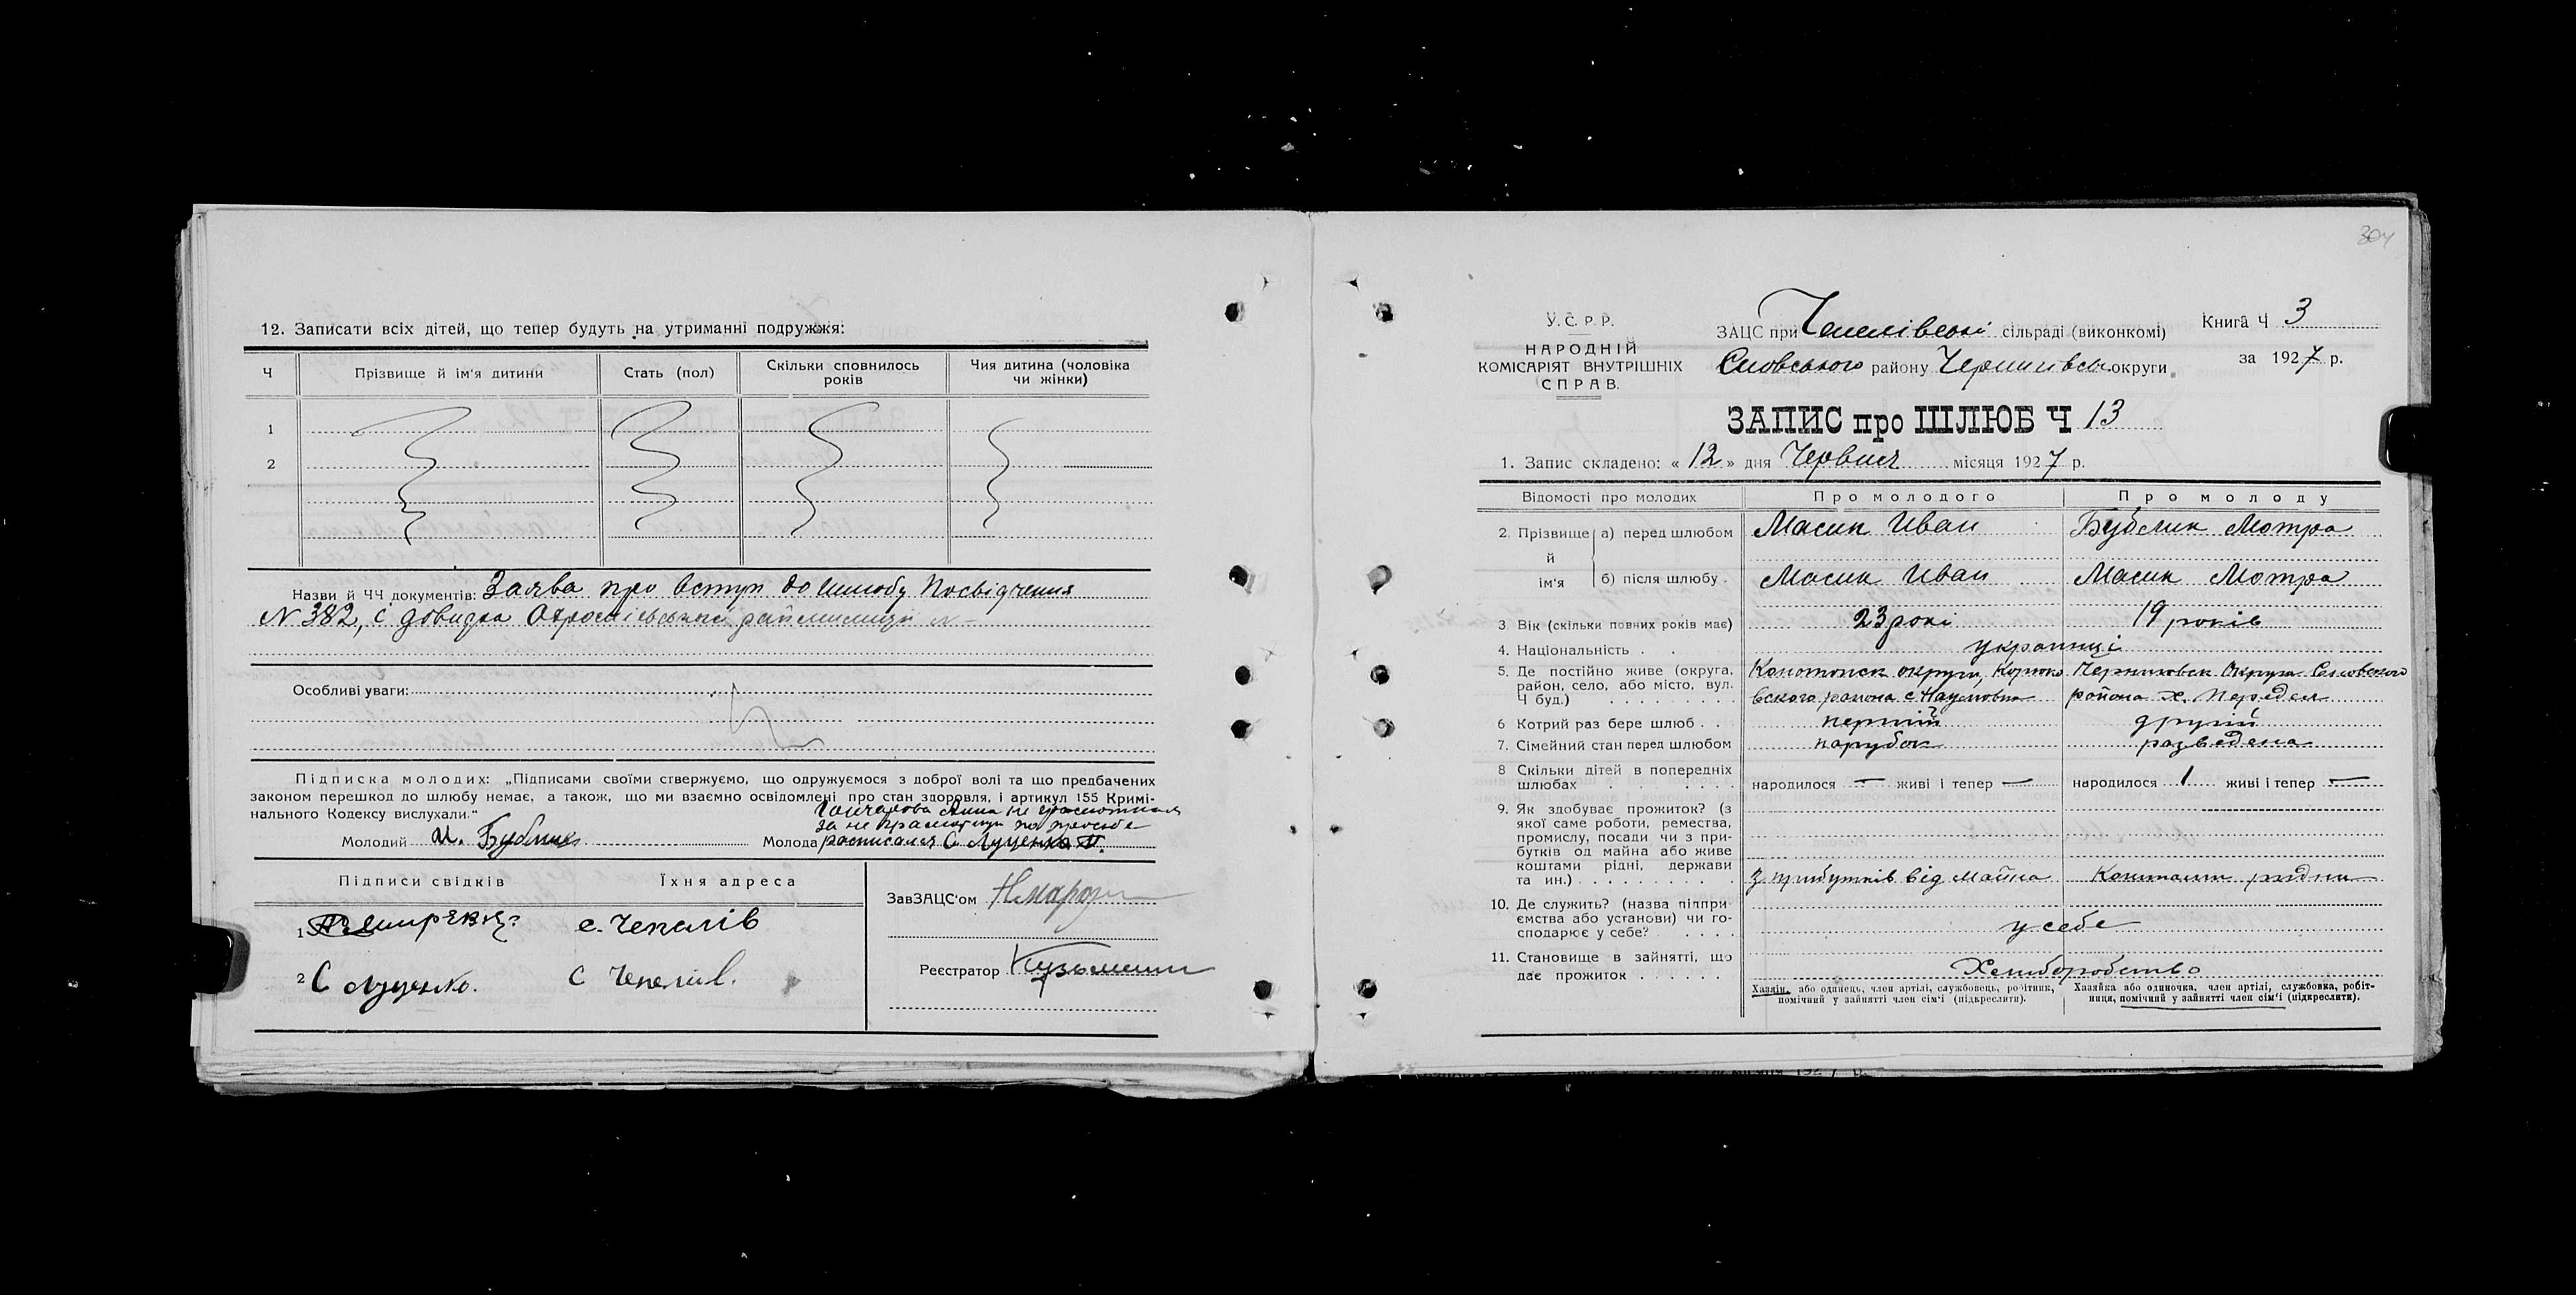 12. Записати всіх дітей, що тепер будуть на утриманні подружжя:
Ч Прізвище й ім'я дитини Стать (пол) Скільки сповнилось років Чия дитина (чоловіка чи жінки)
1
2
Назви й ЧЧ документів: Заява про вступ до шлюбу Посвідчення
N 382, і довидка
Особливі уваги:
Підписка молодих: „Підписами своїми стверджуємо, що одружуємося з доброї волі та що предбачених
законом перешкод до шлюбу немає, а також, що ми взаємно освідомлені про стан здоровля, і артикул 155 Кримі-
нального Кодексу вислухали."
Гончарова Анна не грамотная
за не грамотную по просьбе
Молодий И. Бублик Молода расписался С Луценко
Підписи свідків Їхня адреса
1 с. Чепелів
2 С Луценко. С Чепелів.
ЗавЗАЦС'ом
Реєстратор Кузьменин
304
У. С. Р. Р.
НАРОДНІЙ
КОМІСАРІЯТ ВНУТРІШНІХ
СПРАВ.
ЗАЦС при Чепелівські сільраді (виконкомі)
Сновського району Чернигівськ округи
Книга Ч 3
за 1927 р.
ЗАПИС про ШЛЮБ Ч 13
1. Запис складено: « 12 » дня Червня місяця 1927 р.
Відомості про молодих Про молодого Про молоду
2. Прізвище й ім'я а) перед шлюбом Масик Иван Бублик Мотра
б) після шлюбу . Масик Иван Масик Мотра
3. Вік (скільки повних років має) 23 рокі 19 років
4. Національність . . українці
5. Де постійно живе (округа, Конотопск округи, Корюко Черниговск Округи Сновского
район, село, або місто, вул. вского района с Наумовка района х. Передел
Ч буд.) . . . . . . . . .
6 Котрий раз бере шлюб . . перший другий
7. Сімейний стан перед шлюбом парубок разведена
8 Скільки дітей в попередніх
шлюбах . . . . . . народилося — живі і тепер — народилося 1 живі і тепер —
9. Як здобуває прожиток? (з
якої саме роботи, ремества,
промислу, посади чи з при-
бутків од майна або живе
коштами рідні, держави
та ин.) . . . . . . . . . . З прибутків від майна Коштами ридни
10. Де служить? (назва підпри-
ємства або установи) чи го- у себе
сподарює у себе? . . . .
11. Становище в зайнятті, що
дає прожиток . . . . . . Хлиборобство
Хазяїн, або одинець, член артілі, службовець, робітник,
помічний у зайнятті член сім'ї (підкреслити).
Хазяйка або одиночка, член артілі, службовка, робіт-
ниця, помічний у зайнятті член сім'ї (підкреслити).